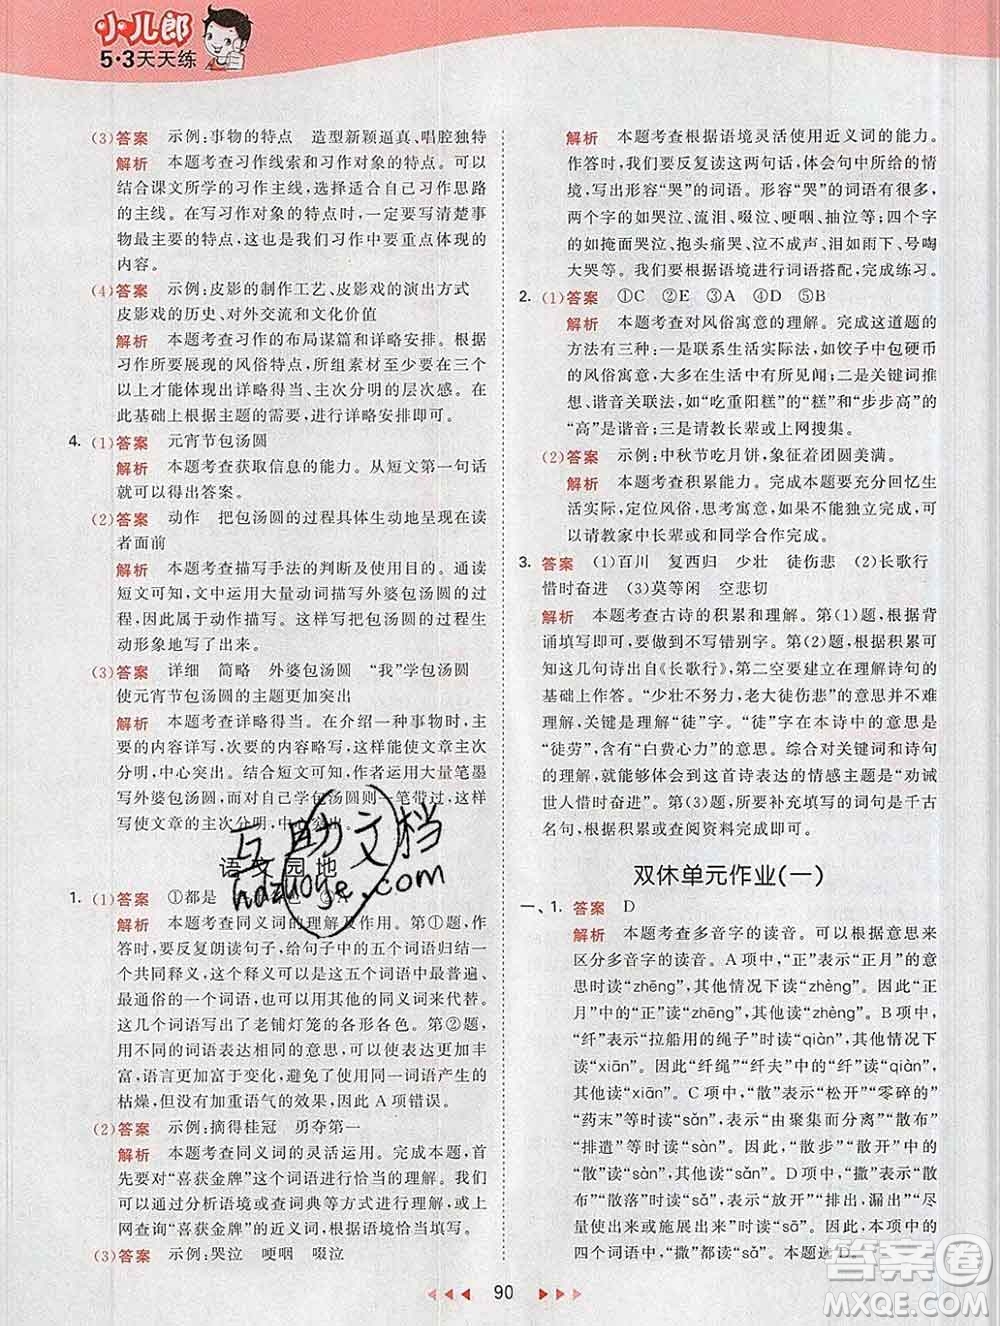 小儿郎
5·3天天练
(3)答案 示例:事物的特点 造型新颖逼真、唱腔独特
解析 本题考查习作线索和习作对象的特点。可以
结合课文所学的习作主线,选择适合自己习作思路
的主线。在写习作对象的特点时,一定要写清楚事
物最主要的特点,这也是我们习作中要重点体现的
内容。
(4)答案 示例:皮影的制作工艺、皮影戏的演出方式
皮影戏的历史、对外交流和文化价值
解析 本题考查习作的布局谋篇和详略安排。根据
习作所要展现的风俗特点,所组素材至少要在三个
以上才能体现出详略得当、主次分明的层次感。在
此基础上根据主题的需要,进行详略安排即可。
4. (1)答案 元宵节包汤圆
解析 本题考查获取信息的能力。从短文第一句话
就可以得出答案。
(2)答案 动作 把包汤圆的过程具体生动地呈现在读
者面前
解析 本题考查描写手法的判断及使用目的。通读
短文可知,文中运用大量动词描写外婆包汤圆的过
程,因此属于动作描写。这样写把包汤圆的过程生
动形象地写了出来。
(3)答案 详细 简略 外婆包汤圆 “我”学包汤圆
使元宵节包汤圆的主题更加突出
解析 本题考查详略得当。在介绍一种事物时,主
要的内容详写,次要的内容略写,这样能使文章主次
分明,中心突出。结合短文可知,作者运用大量笔墨
写外婆包汤圆,而对自己学包汤圆则一笔带过,这样
写使文章的主次分明,中心突出。
语文园地
1. (1)答案 ①都是
解析 本题考查同义词的理解及作用。第①题,作
答时,要反复朗读句子,给句子中的五个词语归结一
个共同释义,这个共同释义就是“都是”的意思。避
免重复使用一个词语,可以用其他的同义词来代替。
这几个词语写出了老铺灯笼的各形各色。第②题,
用不同的词语表达相同的意思,可以使表达更丰富,
语言更加富于变化,避免使用同一词语而产生的
枯燥,但没有加重语气的效果,因此 A 项错误。
(2)答案 示例:摘得桂冠 勇夺第一
解析 本题考查同义词的灵活运用。完成本题,首
先要对“喜获金牌”这个词语进行恰当的理解。我们
可以通过分析语境或查词典等方式进行理解,或上
网查询“喜获金牌”的近义词,根据语境恰当填写。
(3)答案 示例:哭泣 哽咽 啜泣
解析 本题考查根据语境灵活使用近义词的能力。
作答时,我们要反复读这两句话,体会句中所给的情
境,写出形容“哭”的词语。形容“哭”的词语有很多,
两个字的如哭泣、流泪、啜泣、哽咽、抽泣等;四个字
的如掩面哭泣、抱头痛哭、泣不成声、泪如雨下、号啕
大哭等。我们要根据语境进行词语搭配,完成练习。
2. (1)答案 ①C ②E ③A ④D ⑤B
解析 本题考查对风俗寓意的理解。完成这道题的
方法有三种:一是联系生活实际法,如饺子中包硬币
的风俗寓意,大多在生活中有所见闻;二是关键词推
想、谐音关联法,如“吃重阳糕”的“糕”和“步步高”的
“高”是谐音;三是请教长辈或上网搜集。
(2)答案 示例:中秋节吃月饼,象征着团圆美满。
解析 本题考查积累能力。完成本题要充分回忆生
活实际,定位风俗,思考寓意,如果不能独立完成,可
以请教家中长辈或和同学合作完成。
3. 答案 (1)百川 复西归 少壮 徒伤悲 (2)长歌行
惜时奋进 (3)莫等闲 空悲切
解析 本题考查古诗的积累和理解。第(1)题,根据背
诵填写即可,要做到不写错别字。第(2)题,根据积累可
知这几句诗出自《长歌行》,第二空要建立在理解诗句的
基础上作答。“少壮不努力,老大徒伤悲”的意思并不难
理解,关键是理解“徒”字。“徒”字在本诗中的意思是
“徒劳”,含有“白费心力”的意思。综合对关键词和诗句
的理解,就可以概括出这首诗表达的情感主题是“劝诫
世人惜时奋进”。第(3)题,所要补充填写的词句是千古
名句,根据积累或查阅资料完成即可。
双休单元作业(一)
一、1. 答案 D
解析 本题考查多音字的读音。可以根据意思来
区分多音字的读音。A 项中,“正”在“正月”的意
思时读“zhēng”,其他情况下读“zhèng”。因此“正
月”中的“正”读“zhēng”,其他读“zhèng”。B 项中,
“纤”表示“拉船用的绳子”时读“qiàn”,其他情况
下读“xiān”。因此“纤绳”“纤夫”的“纤”读“qiàn”,
其他读“xiān”。C 项中,“散”表示“松开”“零碎的”
“药末”等时读“sǎn”,表示“由聚集而分离”“散布”
“排遣”等时读“sàn”。因此,“散步”“散开”中的
“散”读“sàn”,其他读“sǎn”。D 项中,“撒”表示“散布”
“散落”时读“sǎ”,表示“放开”“排出,漏出”“尽
量使出来或施展出来”时读“sā”。因此,本项中的
四个词语中,“撒”都读“sǎ”。本题选 D。
互助文档
hdzuoye.com
答案圈
MXQE.COM
90